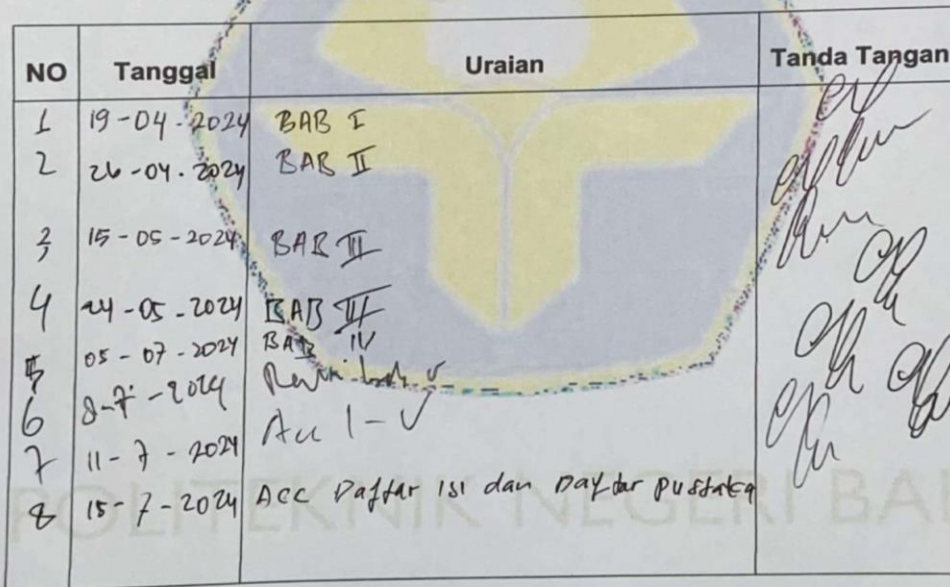 NO Tanggal Uraian Tanda Tangan
1 19-04-2024 BAB I
2 26-04-2024 BAB II
3 15-05-2024 BAB III
4 24-05-2024 BAB III
5 05-07-2024 BAB IV
6 8-7-2024 V
7 11-7-2024 Acc I-V
8 15-7-2024 Acc Daftar isi dan Daftar pustaka
POLITEKNIK NEGERI BA